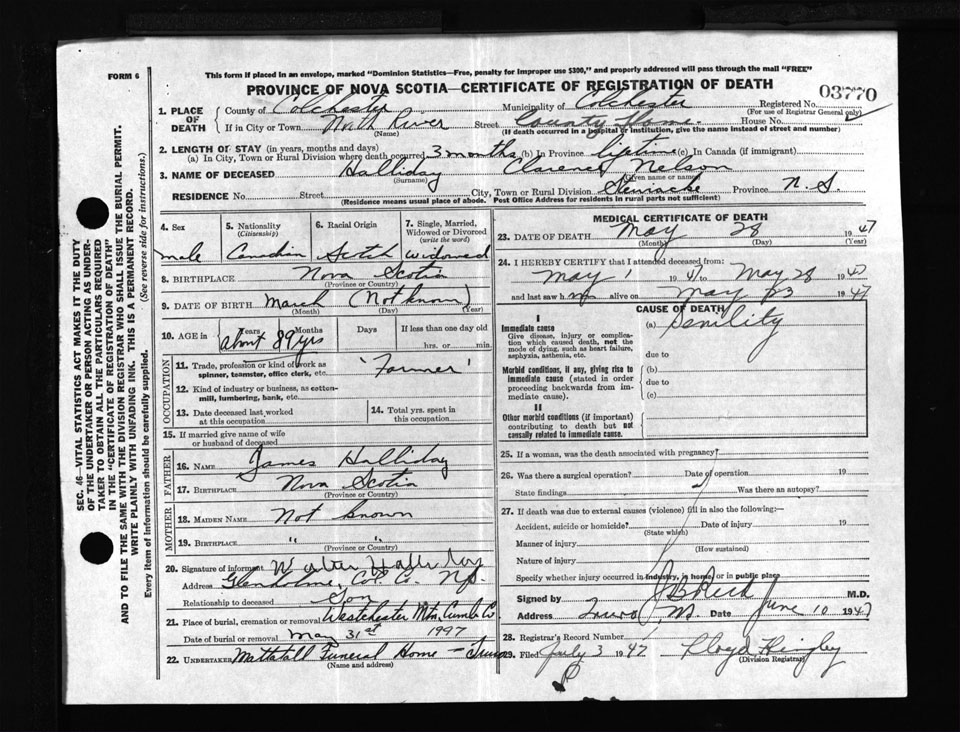 FORM 6
This form if placed in an envelope, marked "Dominion Statistics—Free, penalty for improper use $300," and properly addressed will pass through the mail "FREE"
PROVINCE OF NOVA SCOTIA—CERTIFICATE OF REGISTRATION OF DEATH
03770
1. PLACE OF DEATH
County of Colchester Municipality of Colchester Registered No.
(For use of Registrar General only)
If in City or Town North River Street County Home. House No.
(Name) (If death occurred in a hospital or institution, give the name instead of street and number)
2. LENGTH OF STAY (in years, months and days)
(a) In City, Town or Rural Division where death occurred 3 months (b) In Province lifetime (c) In Canada (if immigrant)
3. NAME OF DECEASED Halliday Clarence Nelson
(Surname) (Given name or names)
RESIDENCE No. Street City, Town or Rural Division Stewiacke Province N.S.
(Residence means usual place of abode. Post Office Address for residents in rural parts not sufficient)
4. Sex
male
5. Nationality (Citizenship)
Canadian
6. Racial Origin
Scotch
7. Single, Married, Widowed or Divorced (write the word)
widowed
8. BIRTHPLACE Nova Scotia
(Province or Country)
9. DATE OF BIRTH March (Not known)
(Month) (Day) (Year)
10. AGE in Years Months Days If less than one day old
about 89 yrs hrs. or min.
OCCUPATION
11. Trade, profession or kind of work as spinner, teamster, office clerk, etc. 'Farmer'
12. Kind of industry or business, as cotton-mill, lumbering, bank, etc.
13. Date deceased last worked at this occupation
14. Total yrs. spent in this occupation
15. If married give name of wife or husband of deceased
FATHER
16. NAME James Halliday
17. BIRTHPLACE Nova Scotia
(Province or Country)
MOTHER
18. MAIDEN NAME Not known
19. BIRTHPLACE " "
(Province or Country)
20. Signature of informant Walter Halliday
Address Glenholme, Col. Co. N.S.
Relationship to deceased Son
21. Place of burial, cremation or removal Westchester Mtn, Cumb. Co
Date of burial or removal May 31st 1947
22. UNDERTAKER Mattatall Funeral Home — Truro
(Name and address)
MEDICAL CERTIFICATE OF DEATH
23. DATE OF DEATH May 28 1947
(Month) (Day) (Year)
24. I HEREBY CERTIFY that I attended deceased from:
May 1 1947 to May 28 1947
and last saw him alive on May 23 1947
CAUSE OF DEATH
I
Immediate cause
(a) Senility
Give disease, injury or complication which caused death, not the mode of dying, such as heart failure, asphyxia, asthenia, etc.
due to
Morbid conditions, if any, giving rise to immediate cause (stated in order proceeding backwards from immediate cause).
(b)
due to
(c)
II
Other morbid conditions (if important) contributing to death but not causally related to immediate cause.
25. If a woman, was the death associated with pregnancy?
26. Was there a surgical operation? Date of operation 19
State findings Was there an autopsy?
27. If death was due to external causes (violence) fill in also the following:—
Accident, suicide or homicide? Date of injury 19
(State which)
Manner of injury
(How sustained)
Nature of injury
Specify whether injury occurred in industry, in home, or in public place
Signed by J B Reid M.D.
Address Truro, N.S. Date June 10 1947
28. Registrar's Record Number
29. Filed July 3 1947 Lloyd Hingley
(Division Registrar)
SEC. 46—VITAL STATISTICS ACT MAKES IT THE DUTY
OF THE UNDERTAKER OR PERSON ACTING AS UNDER-
TAKER TO OBTAIN ALL THE PARTICULARS REQUIRED
IN THE "CERTIFICATE OF REGISTRATION OF DEATH"
AND TO FILE THE SAME WITH THE DIVISION REGISTRAR WHO SHALL ISSUE THE BURIAL PERMIT.
WRITE PLAINLY WITH UNFADING INK. THIS IS A PERMANENT RECORD.
Every item of information should be carefully supplied. (See reverse side for instructions.)